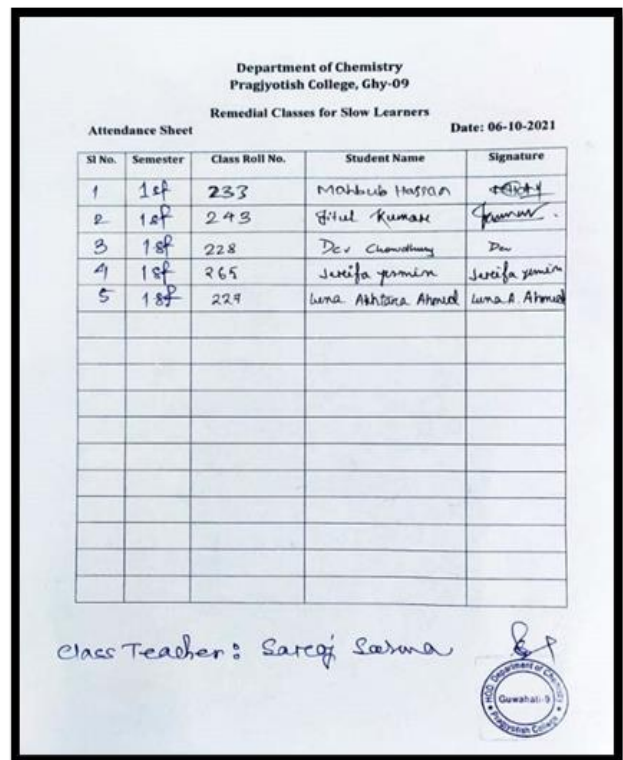 Department of Chemistry
Pragjyotish College, Ghy-09
Remedial Classes for Slow Learners
Attendance Sheet Date: 06-10-2021
Sl No. Semester Class Roll No. Student Name Signature
1 1st 233 Mahbub Hassan
2 1st 243 Jitul Kumar Kumar
3 1st 228 Dev Chowdhury Dev
4 1st 265 Jereifa yesmin Jereifa yesmin
5 1st 229 Luna Akhtara Ahmed Luna A. Ahmed
Class Teacher: Sarma
HOD Department of Chemistry
Guwahati-9
Pragjyotish College